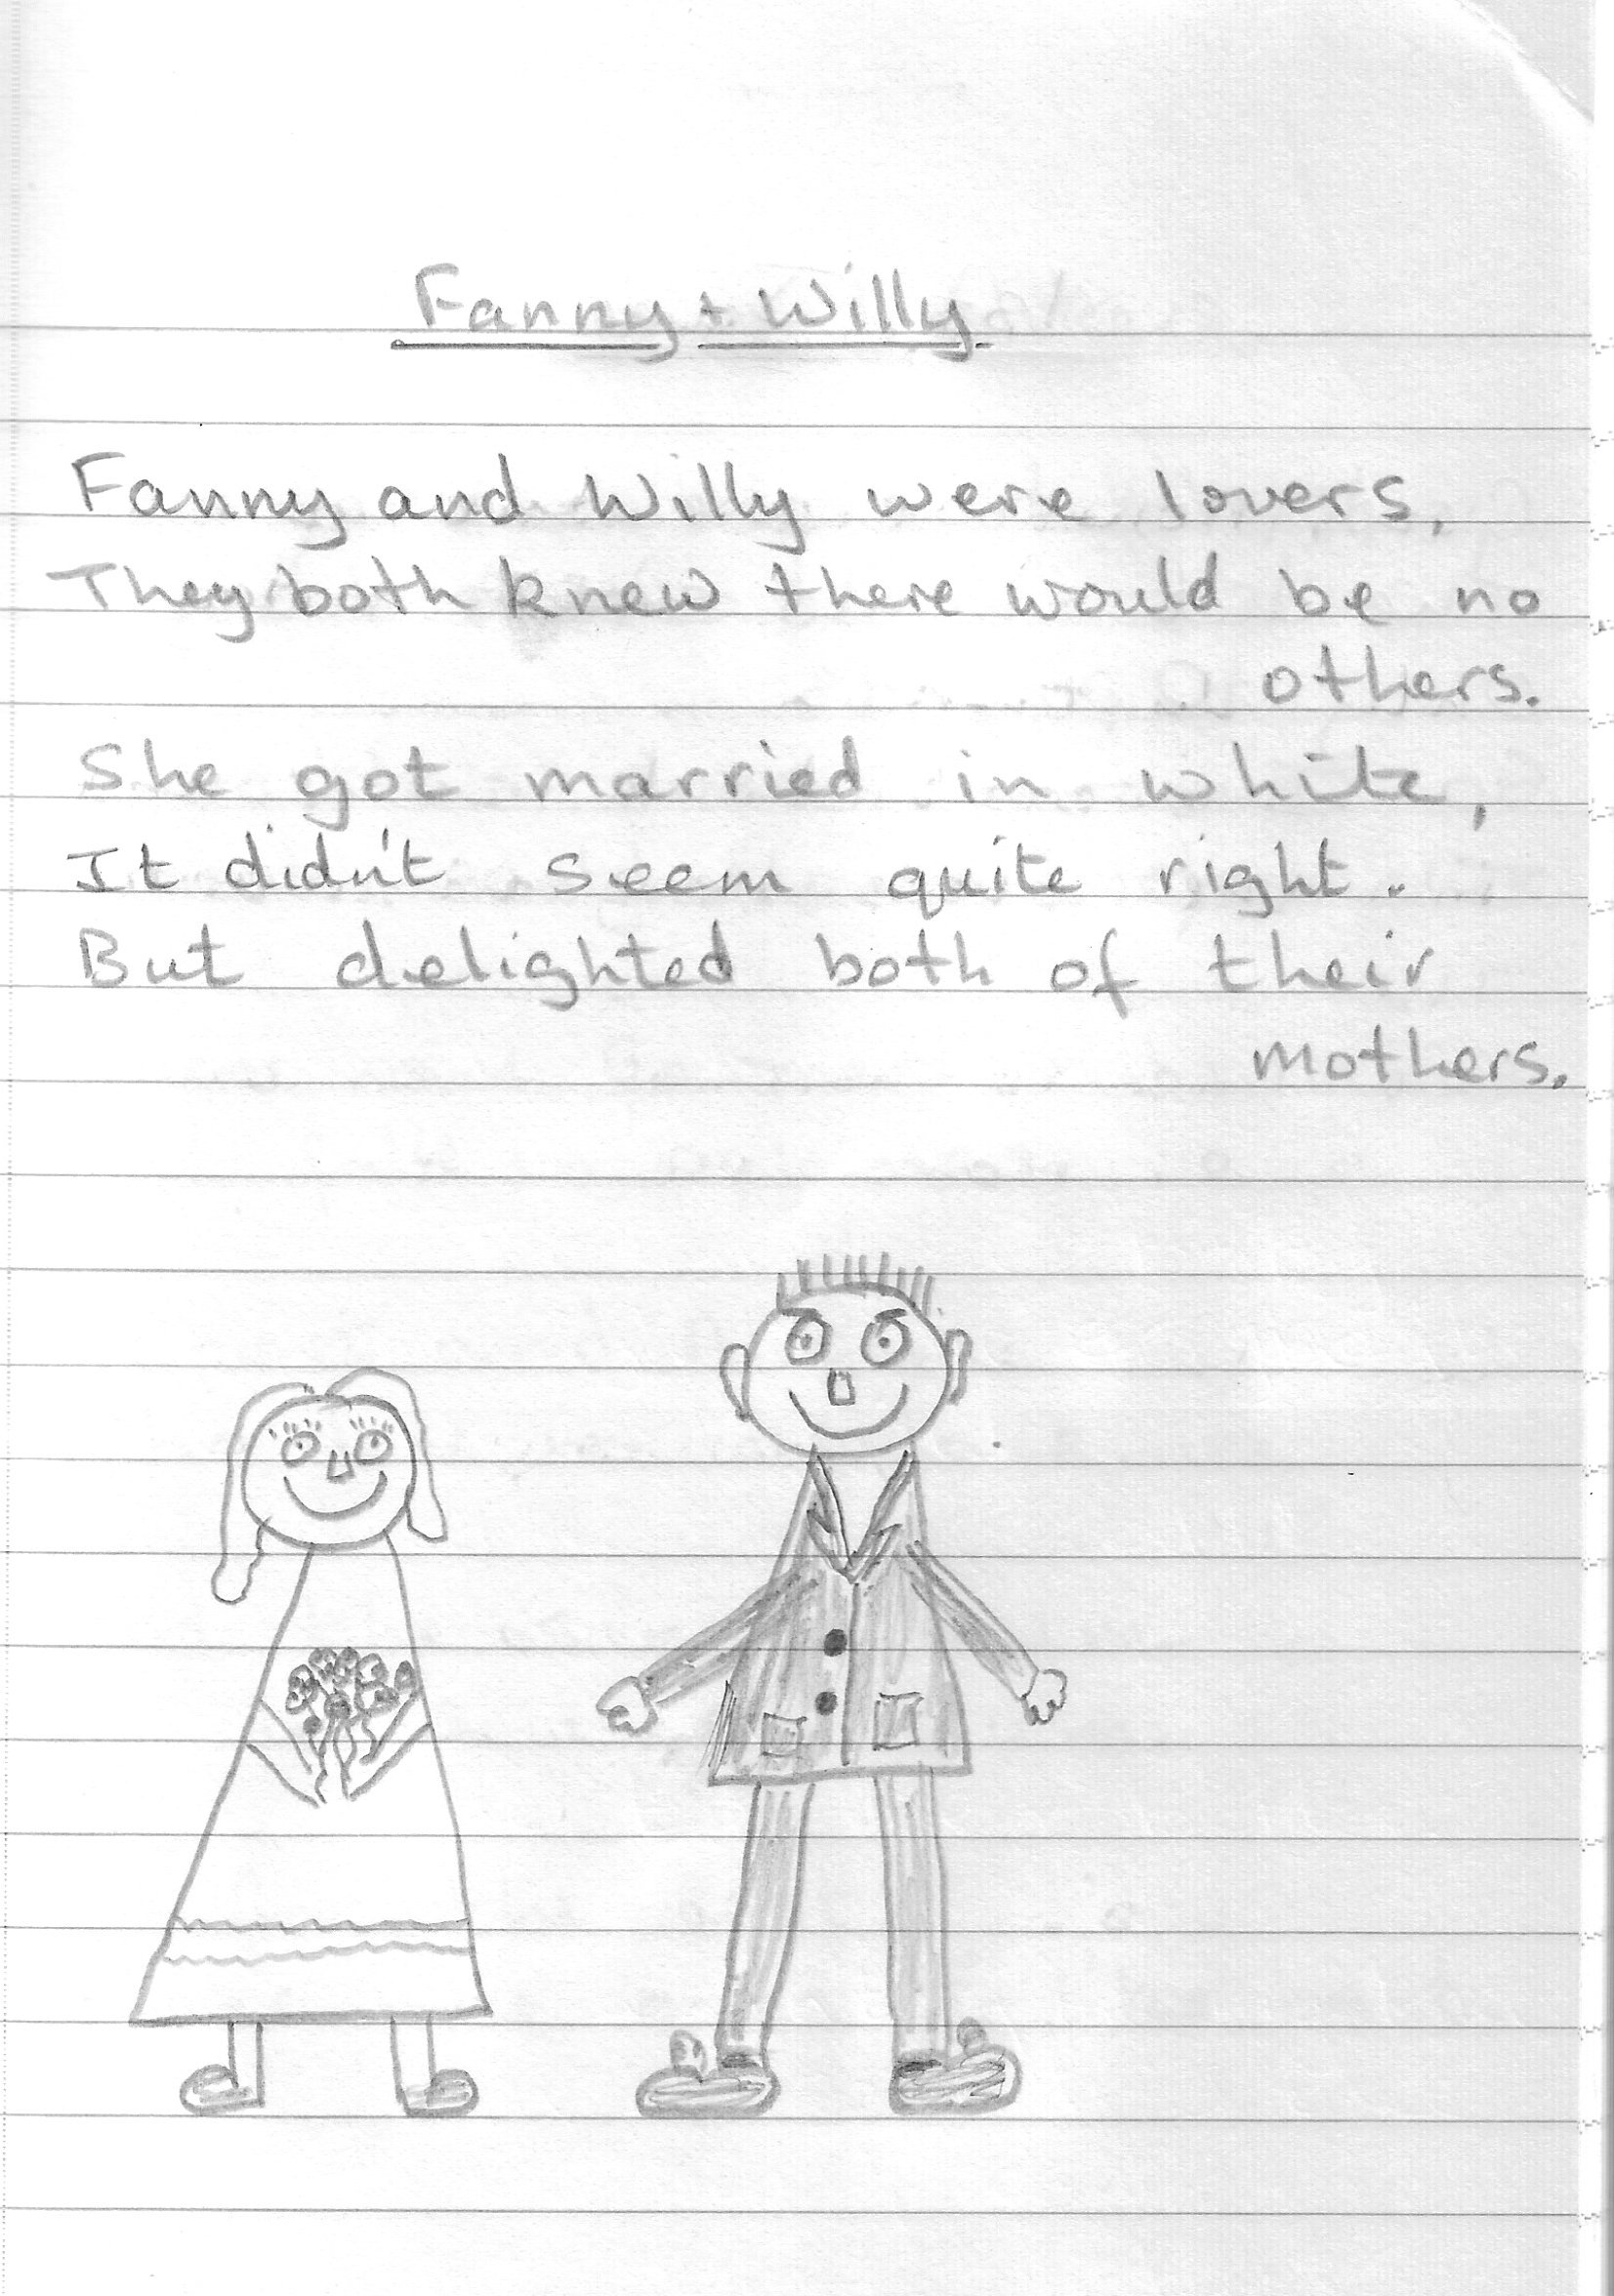 Fanny + Willy
Fanny and Willy were lovers,
They both knew there would be no
others.
She got married in white,
It didn't seem quite right.
But delighted both of their
mothers.